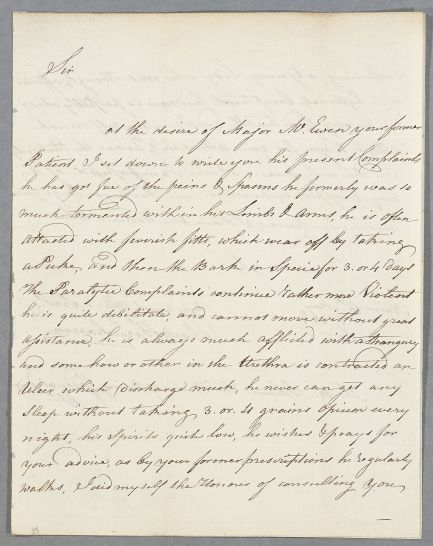 Sir
at the desire of Major Mc. Ewen your former
Patient. I set down to write you his present Complaints
he has got free of the pains & Spasms he formerly was so
much tormented with in his Limbs & arms, he is often
attacted with feverish fitts, which wear off by taking
a Puke, and then the Bark in Specie for 3. or 4 days
The Paralytic Complaints continue rather more Violent
he is quite debilitate, and cannot move without great
assistance, he is always much afflicted with a strangury
and some how or other in the Urethra is contracted an
Ulcer which Discharge much, he never can get any
Sleep without taking 3. or. 4 grains Opium every
night, his Spirits quite low, he wishes & prays for
your advice, as by your former prescriptions he regularly
walks. I did myself the Honour of consulting You
58